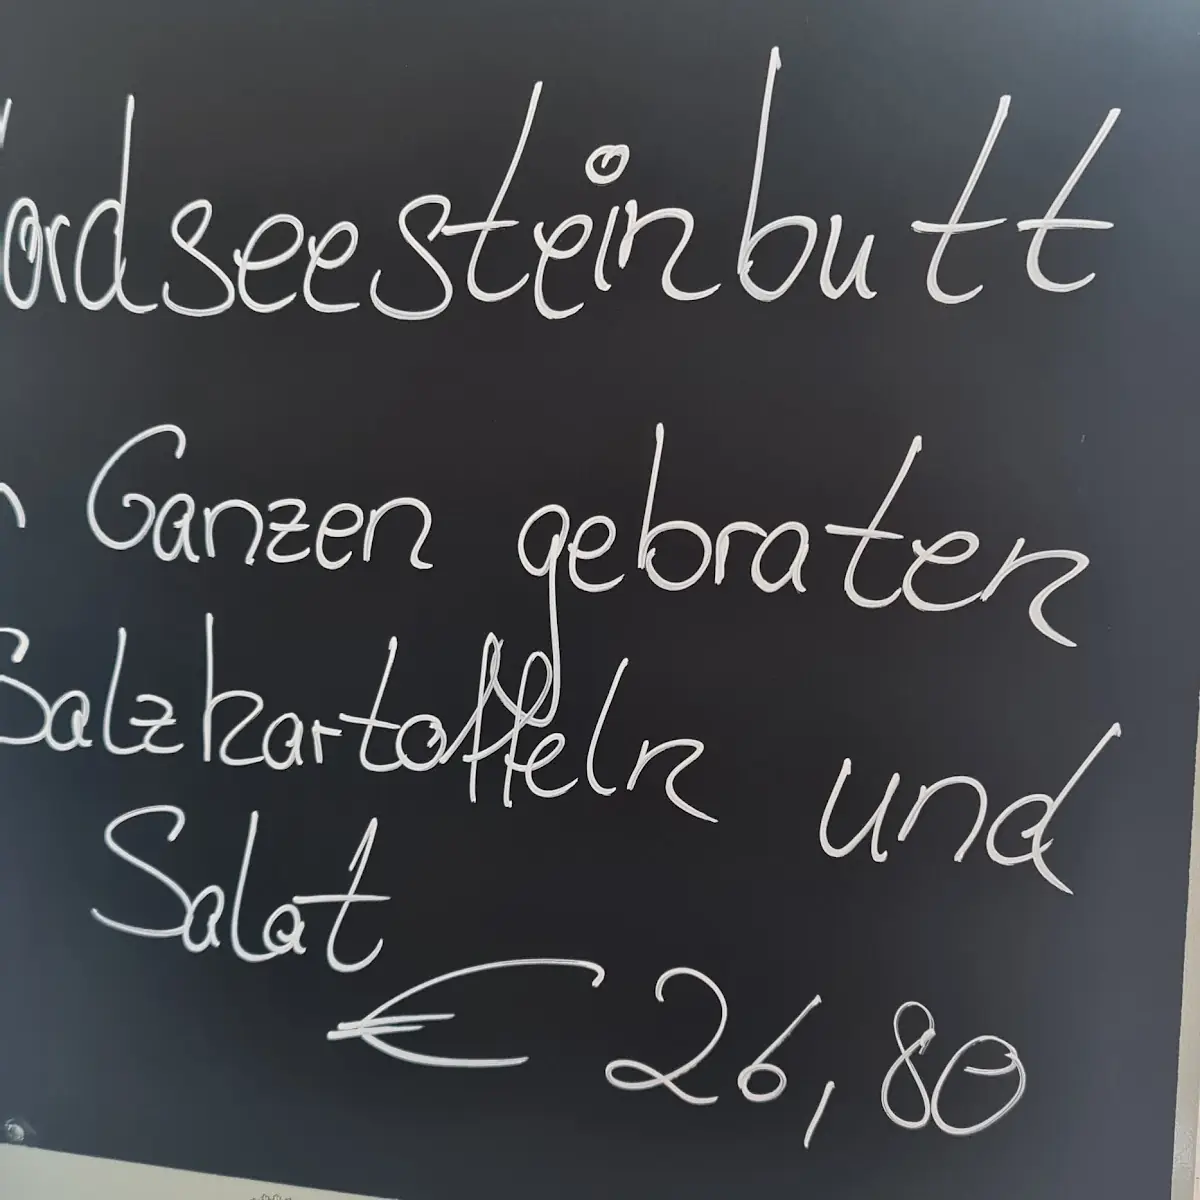 Nordseesteinbutt
Ganzen gebraten
Salzkartoffeln und
Salat
€ 26,80